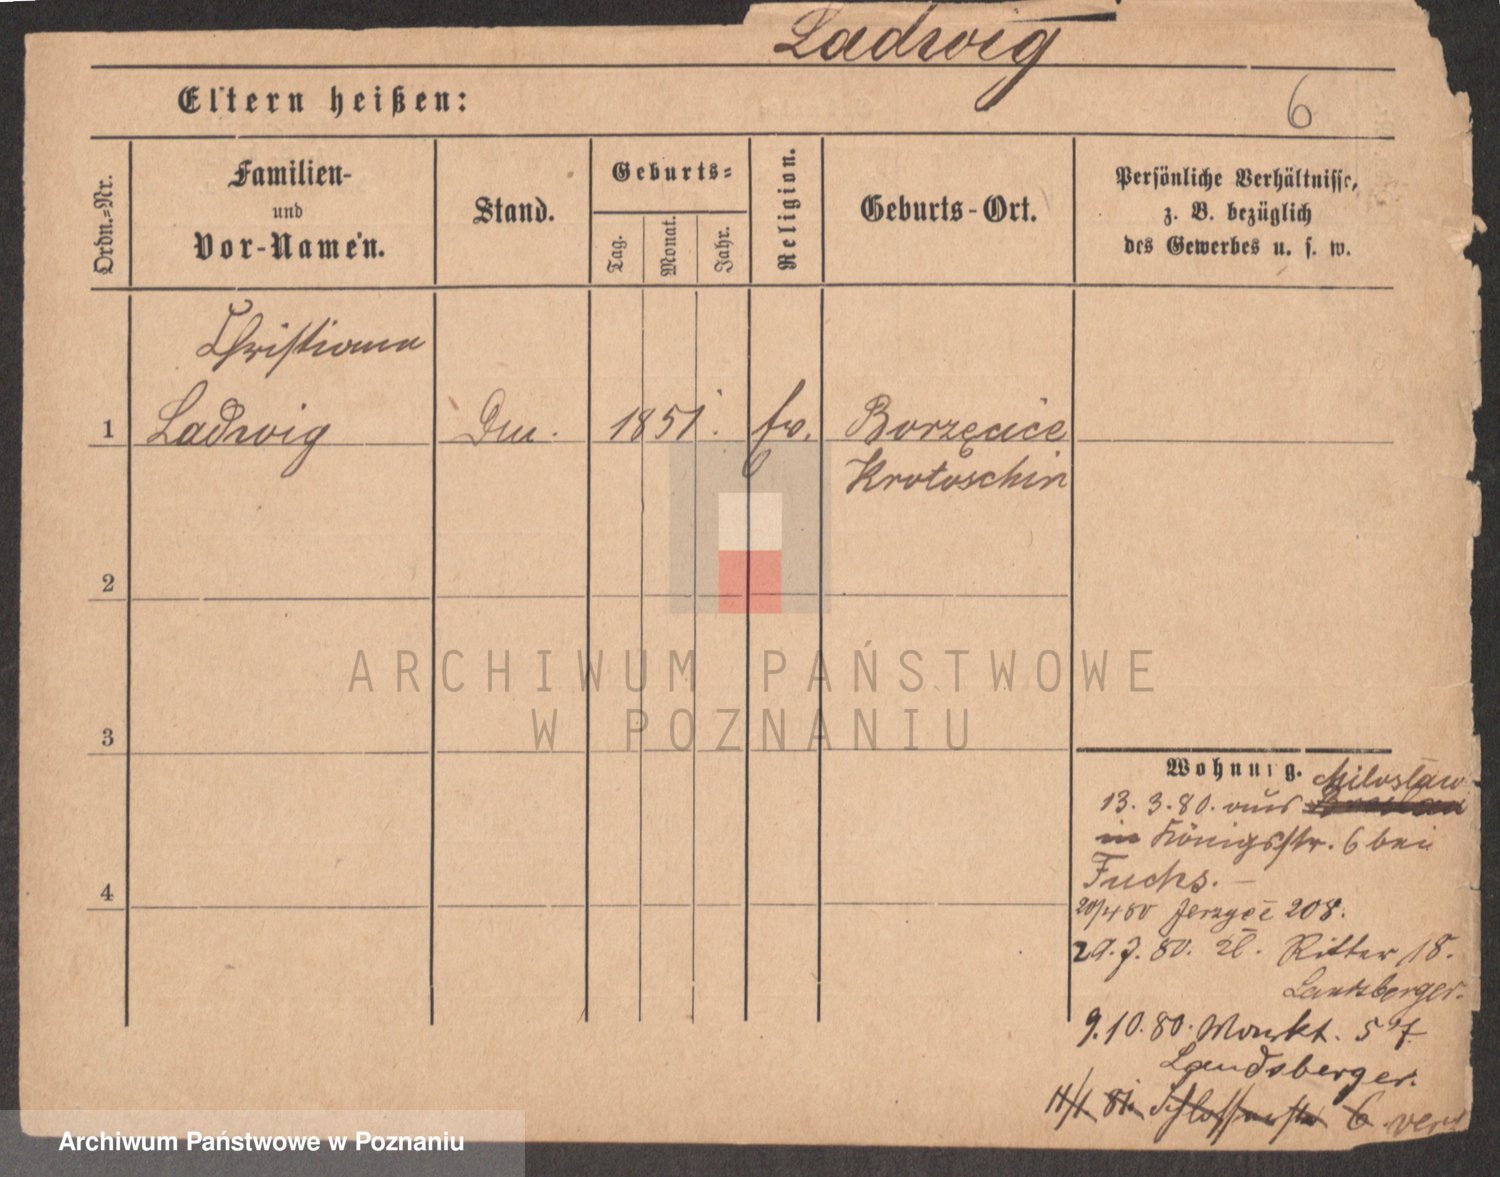 Ladwig
Eltern heißen:
6
Ordn.=Nr.
Familien-
und
Vor-Namen.
Stand.
Geburts=
Tag.
Monat.
Jahr.
Religion.
Geburts-Ort.
Persönliche Verhältnisse,
z. B. bezüglich
des Gewerbes u. s. w.
Christiana
1 Ladwig 1851. Borzęcice
Krotoschin
2
3
4
ARCHIWUM PAŃSTWOWE
W POZNANIU
Wohnung.
Miloslaw
13. 3. 80. aus Breslau
in Königsstr. 6 bei
Fuchs. —
20/4 80 Jerzyce 208.
29. 7. 80. Kl. Ritter 18.
Landsberger.
9. 10. 80. Markt. 57.
Landsberger.
11/1 81. Schlosserstr 6
Archiwum Państwowe w Poznaniu